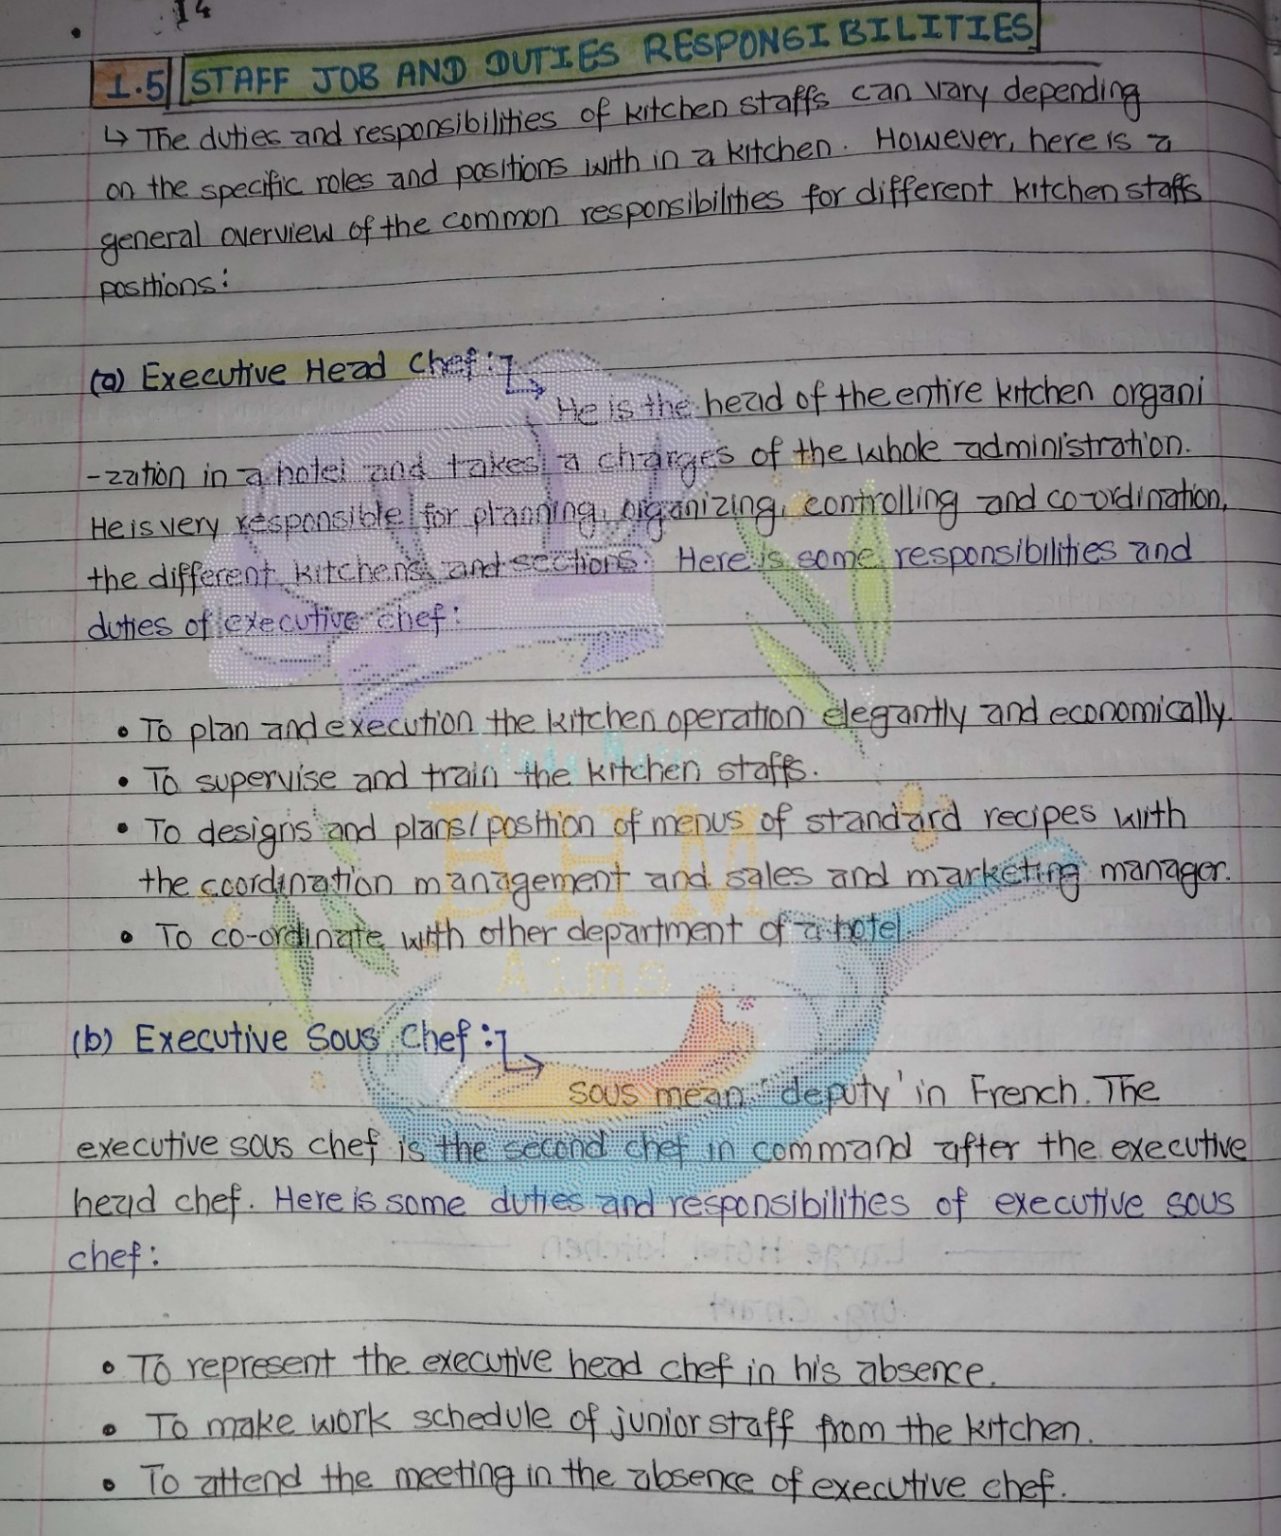 14
1.5 STAFF JOB AND DUTIES RESPONSIBILITIES
↳ The duties and responsibilities of kitchen staffs can vary depending
on the specific roles and positions with in a kitchen. However, here is a
general overview of the common responsibilities for different kitchen staffs
positions:
(a) Executive Head Chef:
He is the head of the entire kitchen organi
-zation in a hotel and takes a charges of the whole administration.
He is very responsible for planning, organizing, controlling and co-ordination,
the different kitchens and sections. Here is some responsibilities and
duties of executive chef:
• To plan and execution the kitchen operation elegantly and economically.
• To supervise and train the kitchen staffs.
• To designs and plans/position of menus of standard recipes with
the coordination management and sales and marketing manager.
• To co-ordinate with other department of a hotel.
BHM
Aims
(b) Executive Sous Chef:
Sous mean 'deputy' in French. The
executive sous chef is the second chef in command after the executive
head chef. Here is some duties and responsibilities of executive sous
chef:
• To represent the executive head chef in his absence.
• To make work schedule of junior staff from the kitchen.
• To attend the meeting in the absence of executive chef.